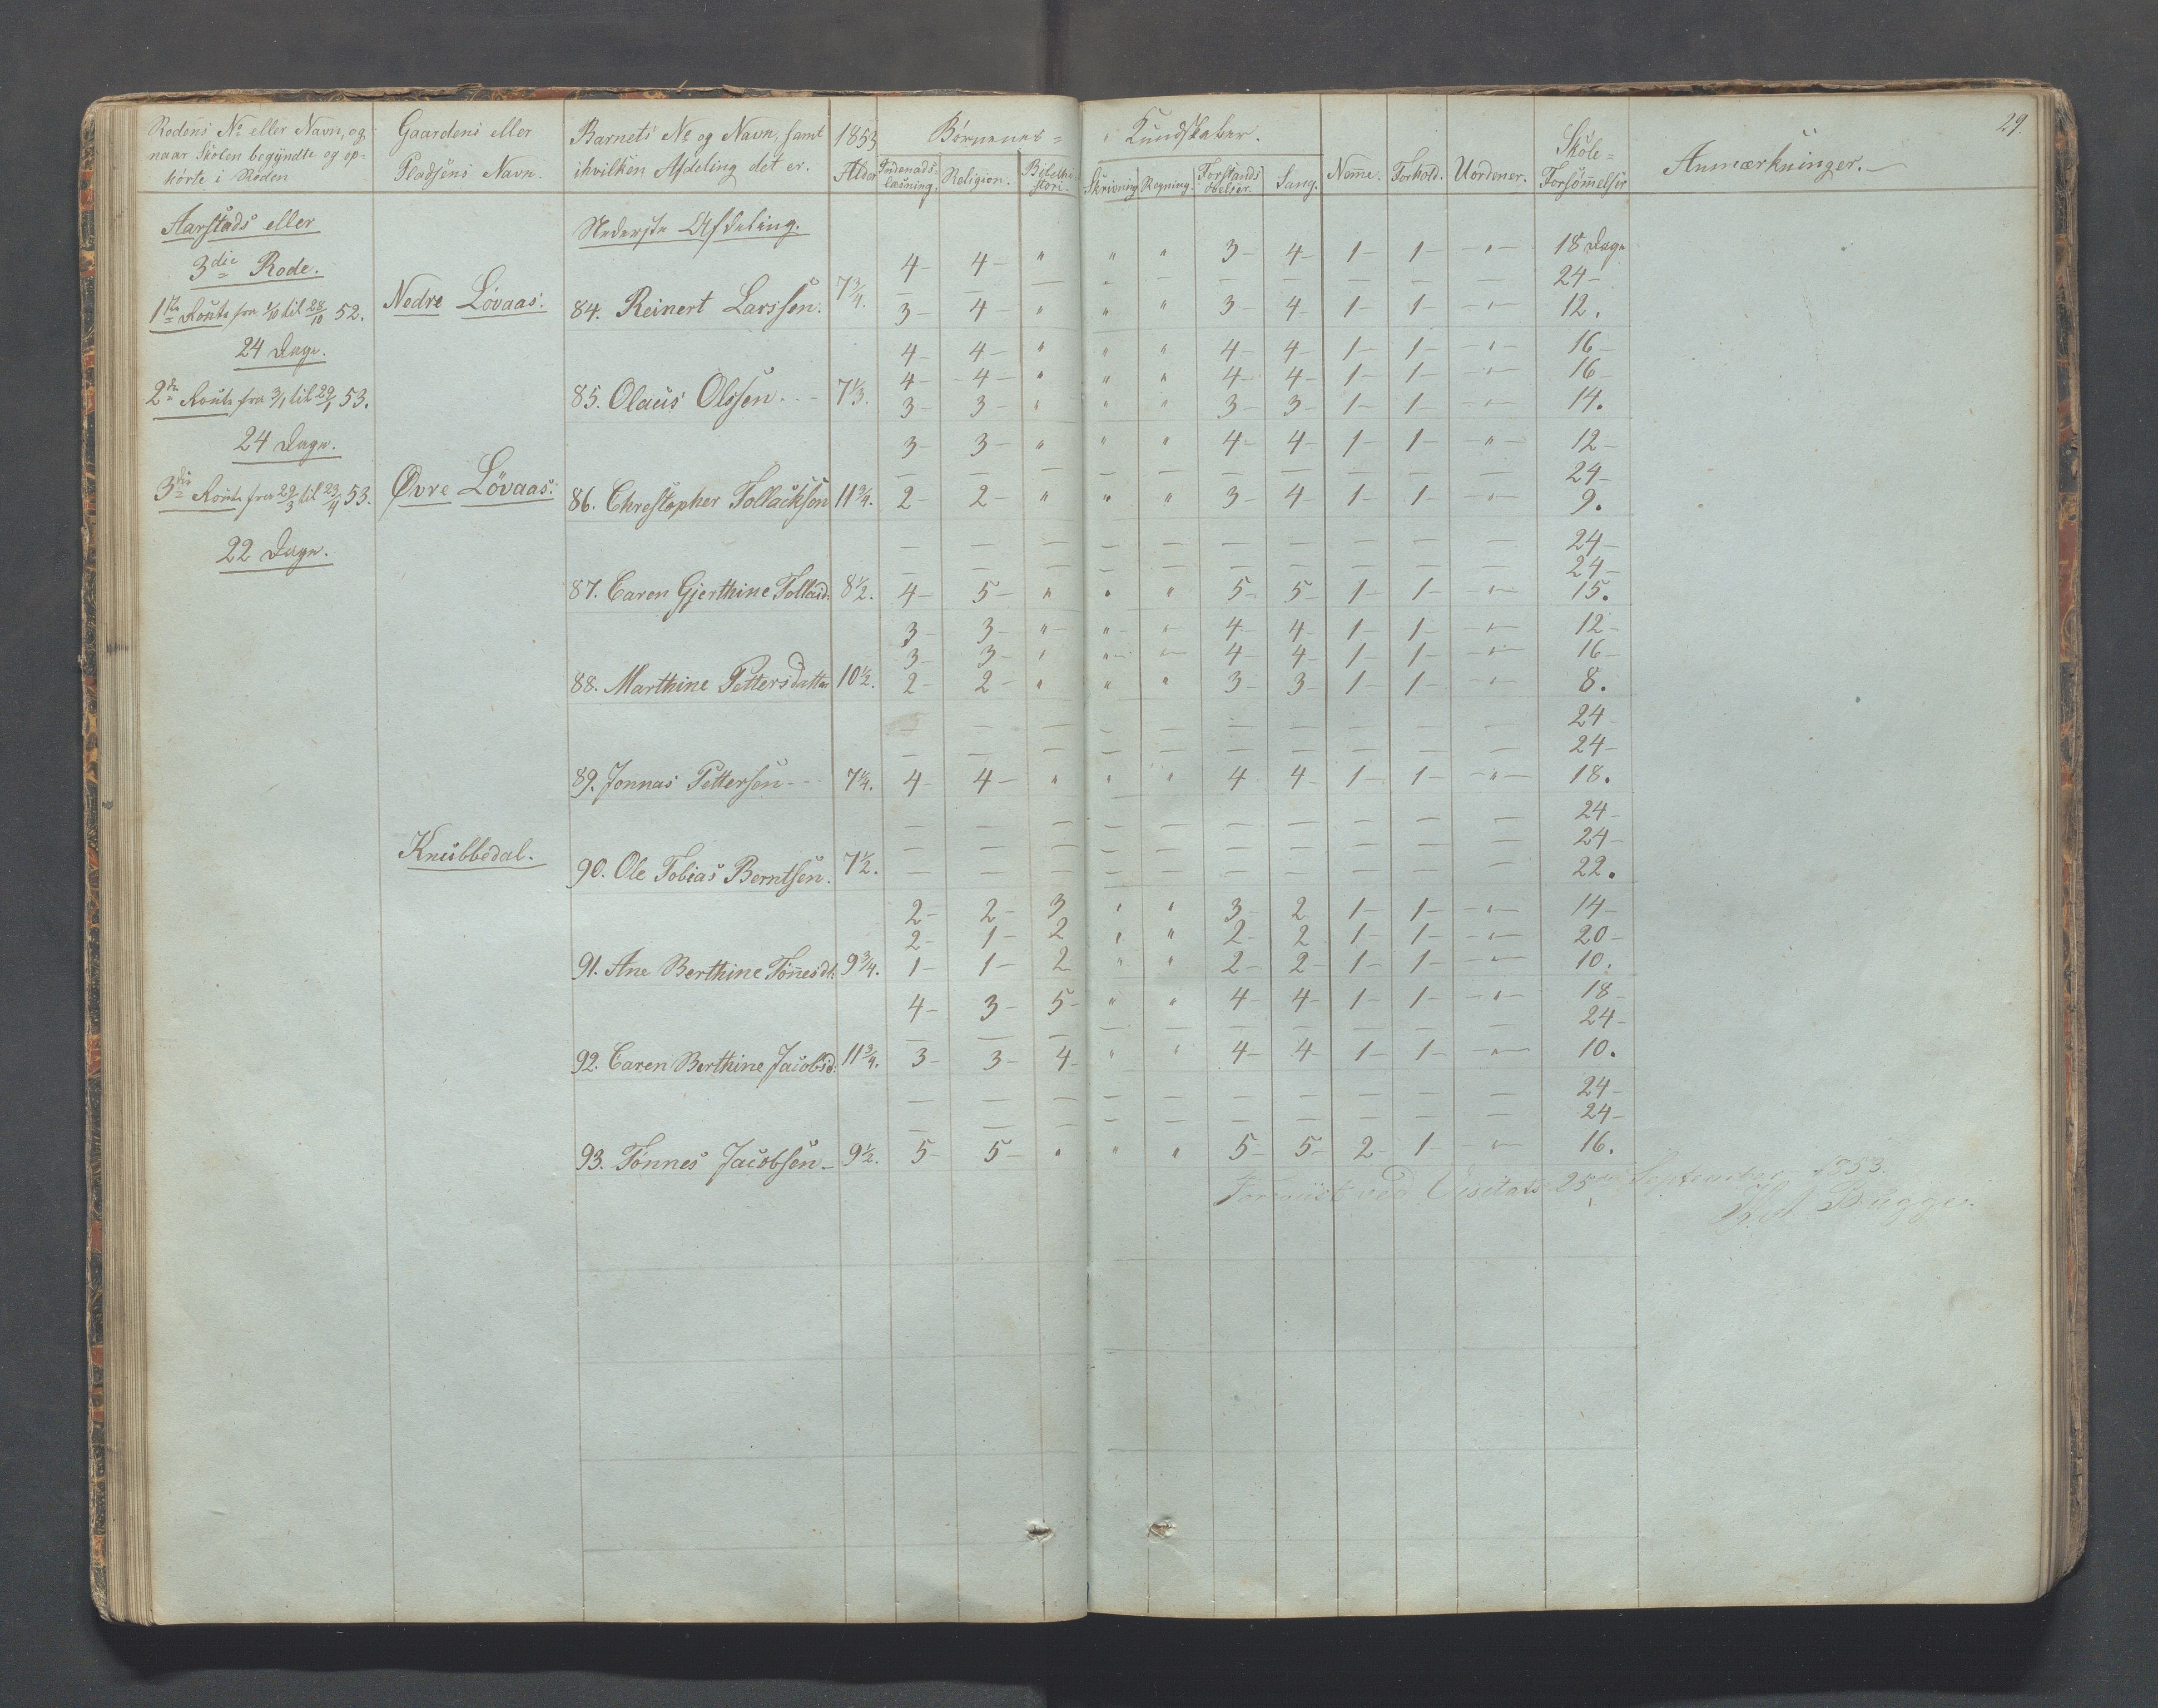 29.
Rodens No eller Navn, og naar Skolen begyndte og ophörte i Roden | Gaardens eller Pladsens Navn. | Barnets No og Navn, samt ihvilken Afdeling det er. | 1853 Alder | Børnenes Kundskaber. Indenadslæsning. | Religion. | Bibelhistori. | Skrivning | Regning. | Forstandsövelser. | Sang. | Nemme. | Forhold. | Uordener. | Skole-Forsömmelser | Anmærkninger.
Aarstads eller
3die Rode.
Nederste Afdeling.
4 – 4 – " " " 3 – 4 – 1 – 1 – " – 18 Dage
– – – – – – – – – – 24 –
1ste Route fra 1/10 til 28/10 52. Nedre Lövaas. 84. Reinert Larssen. 7 3/4. 3 – 4 – " " " 3 – 4 – 1 – 1 – " – 12.
24 Dage.
4 – 4 – " " " 4 – 4 – 1 – 1 – " – 16 –
4 – 4 – " " " 4 – 4 – 1 – 1 – " – 16 –
2den Route fra 3/1 til 29/1 53. 85. Olaus Olssen – – 7 1/3. 3 – 3 – " " " 3 – 3 – 1 – 1 – " – 14.
24 Dage.
3 – 3 – " " " 4 – 4 – 1 – 1 – " – 12 –
– – – – – – – – – – 24 –
3die Route fra 29/3 til 23/4 53. Øvre Lövaas. 86. Christopher Tollacksen 11 3/4. 2 – 2 – " " " 3 – 4 – 1 – 1 – " – 9.
22 Dage.
– – – – – – – – – – 24 –
– – – – – – – – – – 24 –
87. Caren Gjerthine Tollaid. 8 1/2. 4 – 5 – " " " 5 – 5 – 1 – 1 – " – 15.
3 – 3 – " " " 4 – 4 – 1 – 1 – " – 12 –
3 – 3 – " " " 4 – 4 – 1 – 1 – " – 16 –
88. Marthine Pettersdatter 10 1/2. 2 – 2 – " " " 3 – 3 – 1 – 1 – " – 8.
– – – – – – – – – – 24 –
– – – – – – – – – – 24 –
89. Jonnas Pettersen – – 7 1/4. 4 – 4 – " " " 4 4 – 1 – 1 – " – 18.
– – – – – – – – – – 24 –
– – – – – – – – – – 24 –
Knubbedal. 90. Ole Tobias Berntsen. 7 1/2. – – – – – – – – – – 22.
2 – 2 – 3 " " 3 – 2 1 – 1 – " – 14 –
2 – 1 – 2 " " 2 – 2 1 – 1 – " – 20 –
91. Ane Berthine Tönesdt. 9 3/4. 1 – 1 – 2 " " 2 – 2 – 1 – 1 – " – 10.
4 – 3 – 5 – " " 4 – 4 – 1 – 1 – " – 18 –
– – – – – – – – – – 24 –
92. Caren Berthine Jacobsd. 11 3/4. 3 – 3 – 4 – " " 4 – 4 1 – 1 – " – 10.
– – – – – – – – – – 24 –
– – – – – – – – – – 24 –
93. Tönnes Jacobsen – 9 1/2. 5 – 5 – " " " 5 – 5 – 2 – 1 – " – 16.
Foreviist ved Visitats 25 September 1853.
Bugge.